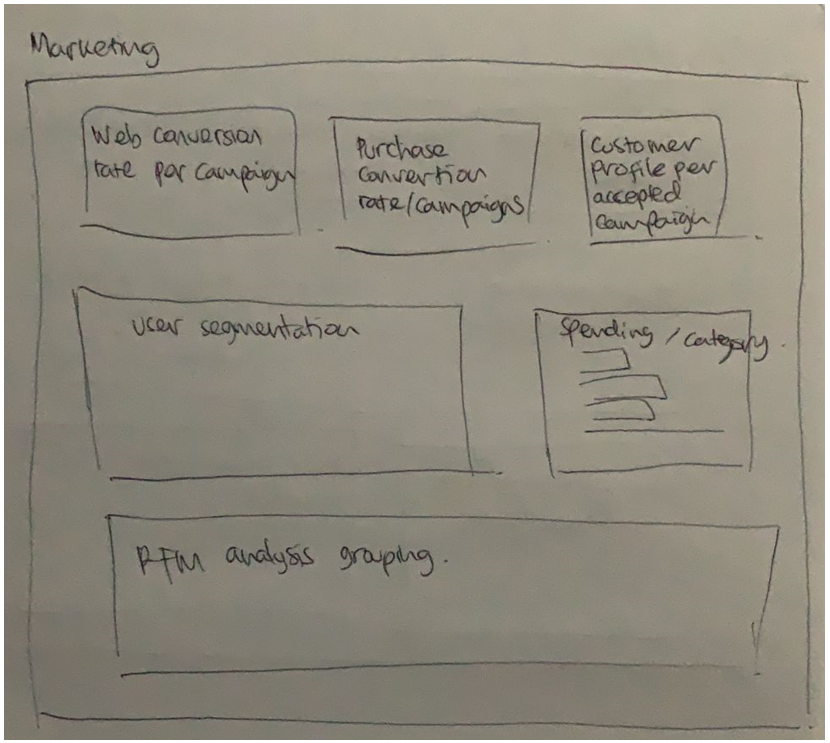 Marketing
Web conversion
rate per campaign
Purchase
convertion
rate/campaigns
Customer
profile per
accepted
campaign
User segmentation
Spending / category
RFM analysis grouping.